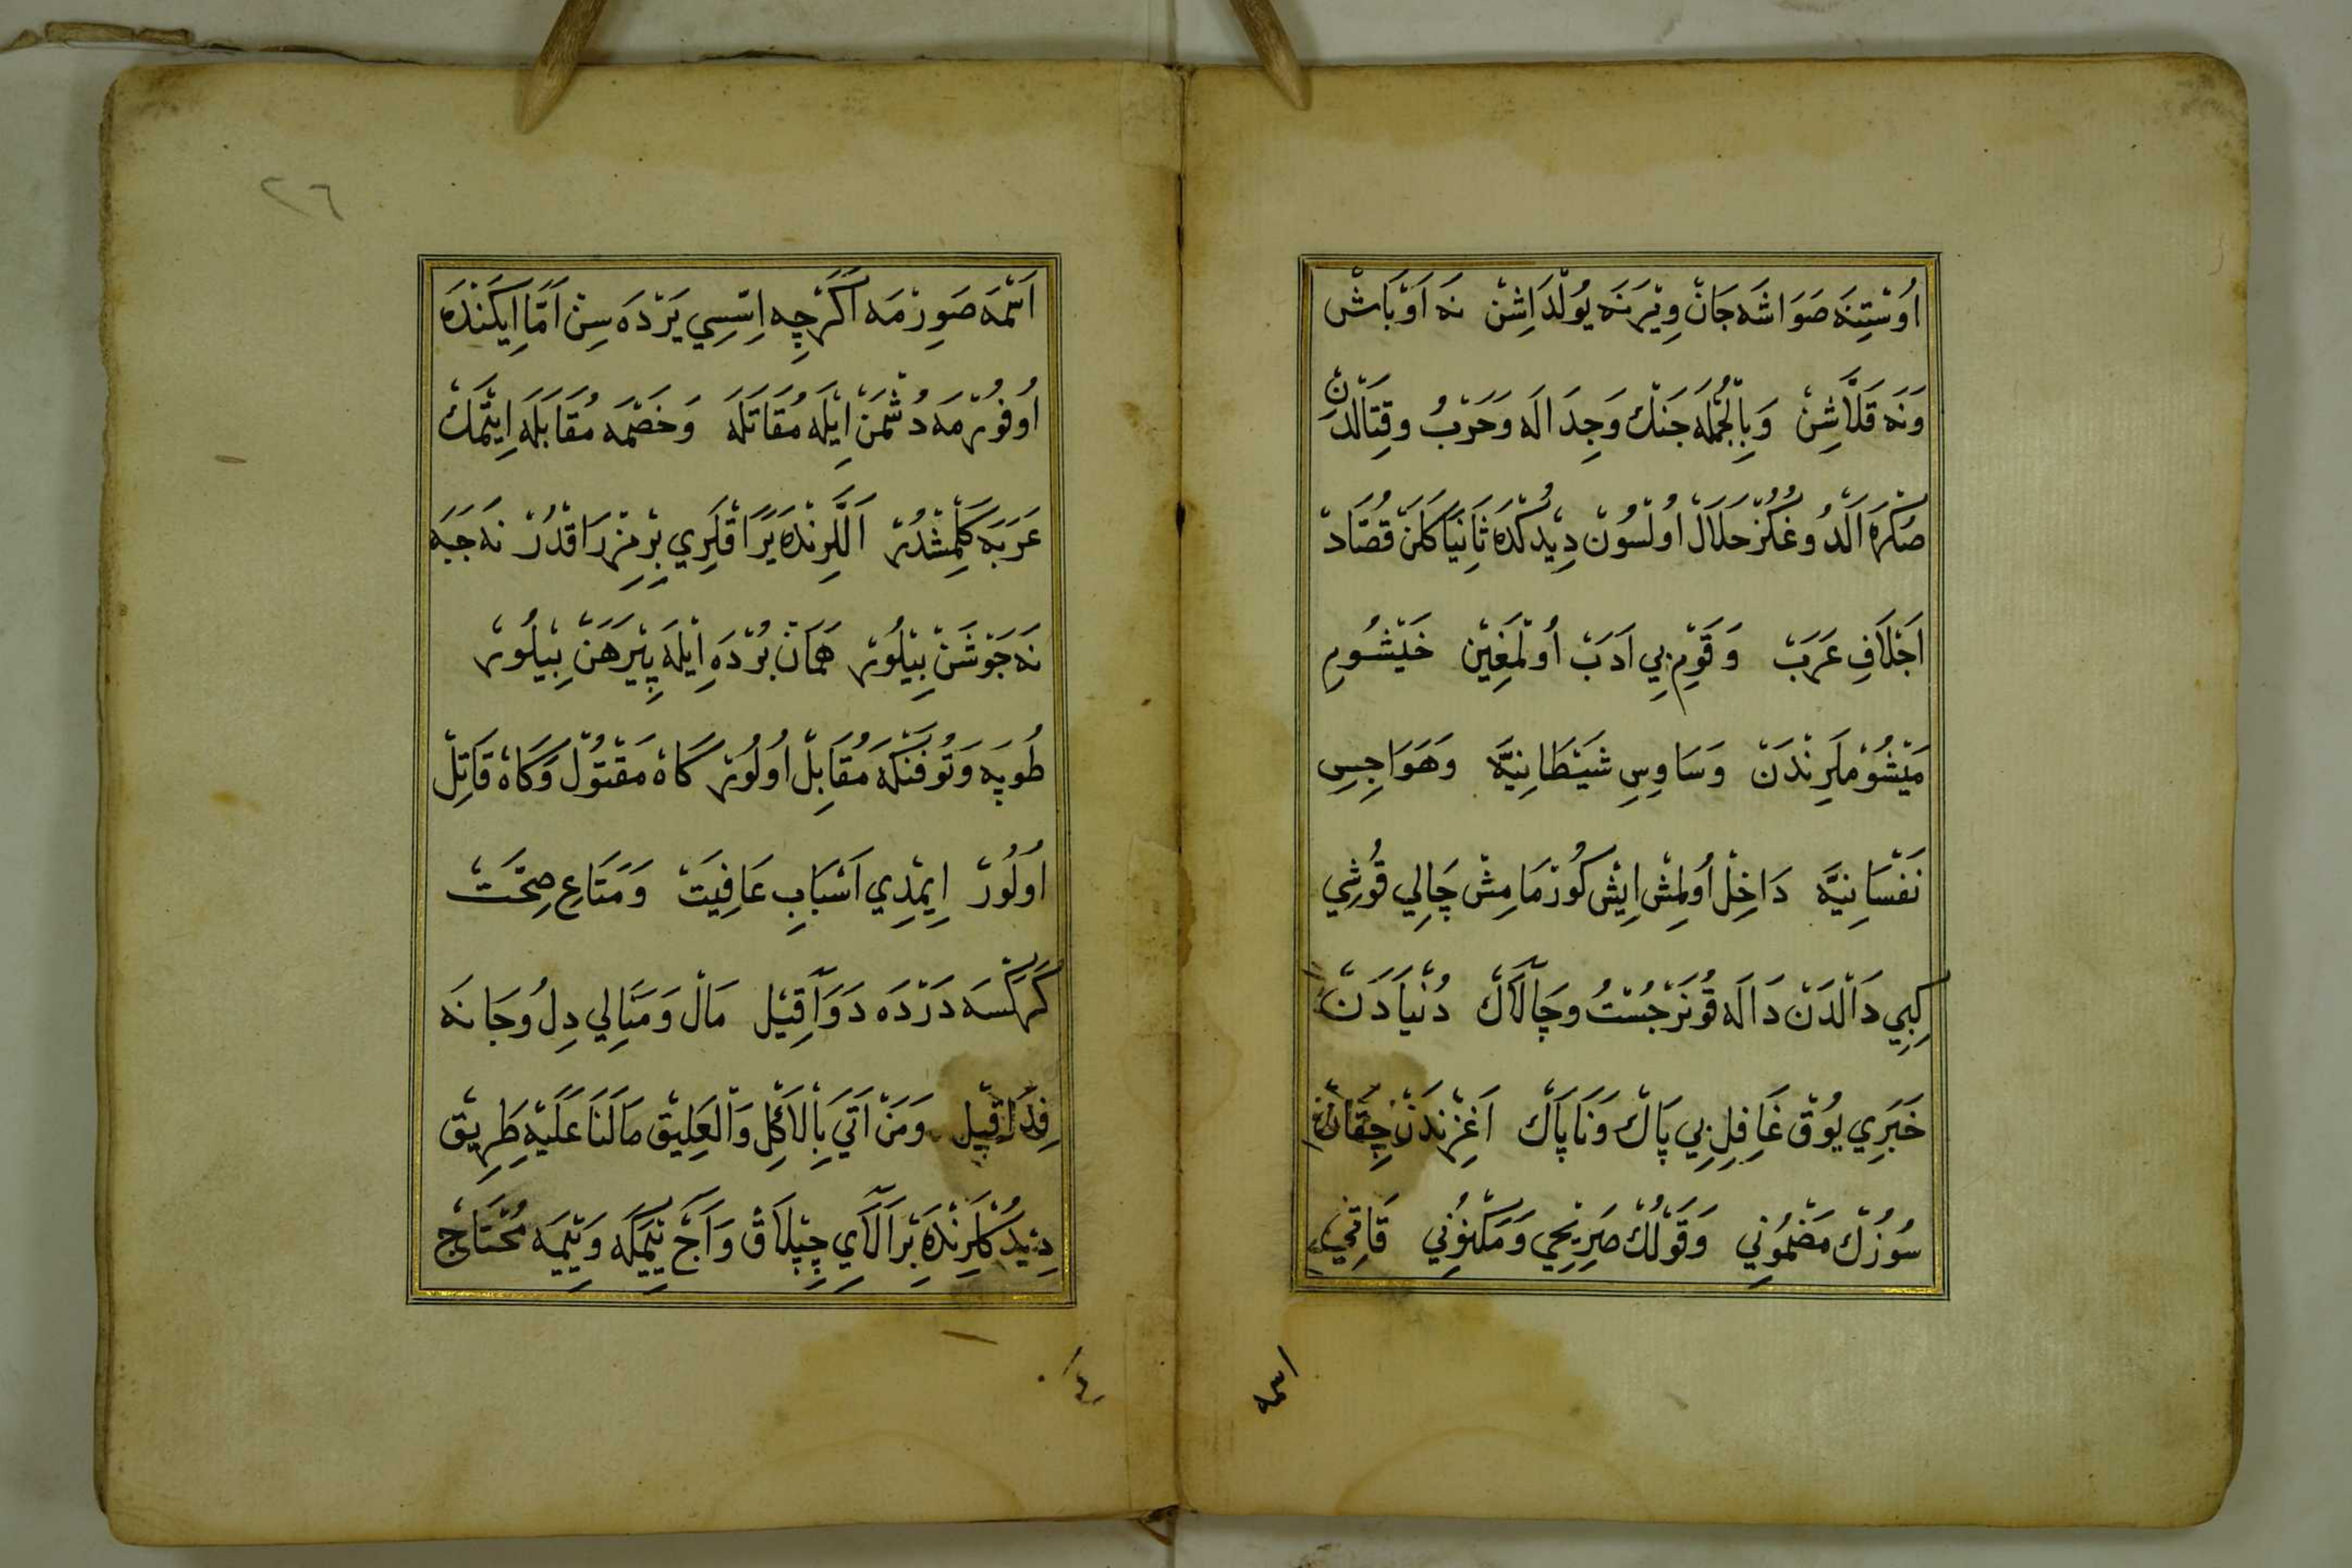 اُوسْتِنَه صَوَاشَه جَانْ وِيْرَنَه يُولْدَاشِنْ نَه اَوْبَاشْ
وَنَه قَلَّاشِنْ وَبِالْجُمْلَه جَنْك وَجِدَالَه وَحَرْبُ وقِتَالْدَن
صُكْرَه اَلْدُوغُكُزْ حَلَالْ اُولْسُونْ دِيْدُكْدَه ثَانِيَا كَلَنْ قُصَّادْ
اَجْلَافِ عَرَبْ وَقَوْمِ بِي اَدَبْ اُولْمَغِيْنْ خَيْشُومِ
مَيْشُوْمْلَرِنْدَنْ وَسَاوِسِ شَيْطَانِيَّه وَهَوَاجِسِ
نَفْسَانِيَّه دَاخِلْ اُولْمِشْ اِيْشْ كُورْمَامِشْ چَالِي قُوشِي
كِبِي دَالْدَنْ دَالَه قُونَرْ جُسْتُ وچَالَاكْ دُنْيَادَنْ
خَبَرِي يُوْقْ غَافِلِ بِي پَاكْ وَنَاپَاكْ اَغِزِنْدَنْ چِقَانْ
سُوزُكْ مَضْمُونِي وَقَوْلُكْ صَرِيْحِي وَمَكْنُونِي قَانْغِي
اسمه
٢٦
اَسْمَه صَوِرْمَه اَكَرْچِه اِسِّسِي يَرْدَه سِنْ اَمَّا اِيكَنْدَه
اُوفُورْمَه دُشْمَنْ اِيْلَه مُقَاتَلَه وَخَصْمَه مُقَابَلَه اِيتْمَكْ
عَرَبَه كَلْمِشْدُرْ اَللَّرِنْدَه يَرَاقْلَرِي بِرْ مِزْرَاقْدُرْ نَه جَبَه
نَه جَوْشَنْ بِيْلُورْ هَمَانْ بُرْدَه اِيْلَه پِيْرَهَنْ بِيْلُورْ
طُوپَه وَتُوفَنْكَه مُقَابِلْ اُولُورْ كَاه مَقْتُولْ وَكَاهْ قَاتِلْ
اُولُورْ اِيمْدِي اَسْبَابِ عَافِيَتْ وَمَتَاعِ صِحَّتْ
كَرَكْسَه دَرْدَه دَوَا قِيْل مَالْ وَمَنَالِي دِلُ وجَانَه
فِدَا قِيْل وَمَنْ اَتَى بِالْاَكْلِ وَالْعَلِيْق مَالَنَا عَلَيْهِ طَرِيْق
دِيْدُكْلَرِنْدَه بَرْ اَلَايِ چِپْلَاقْ وَآجْ يِيْمَكَه وَيِيْمَيَه مُحْتَاجْ